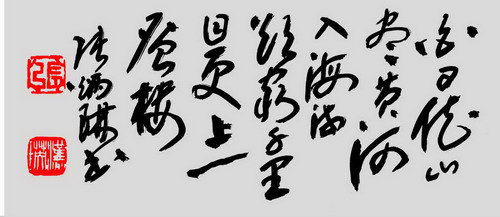 白日依山
尽黄河
入海流
欲窮千里
目更上一
層楼
张书
张